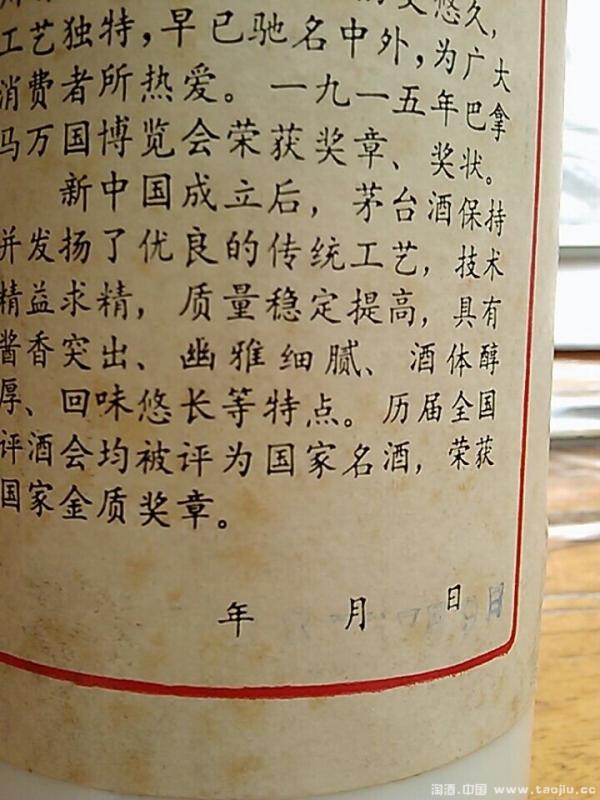 悠久，
工艺独特，早已驰名中外，为广大
消费者所热爱。一九一五年巴拿
马万国博览会荣获奖章、奖状。
新中国成立后，茅台酒保持
并发扬了优良的传统工艺，技术
精益求精，质量稳定提高，具有
酱香突出、幽雅细腻、酒体醇
厚、回味悠长等特点。历届全国
评酒会均被评为国家名酒，荣获
国家金质奖章。
年 月 日
淘酒.中国 www.taojiu.cc